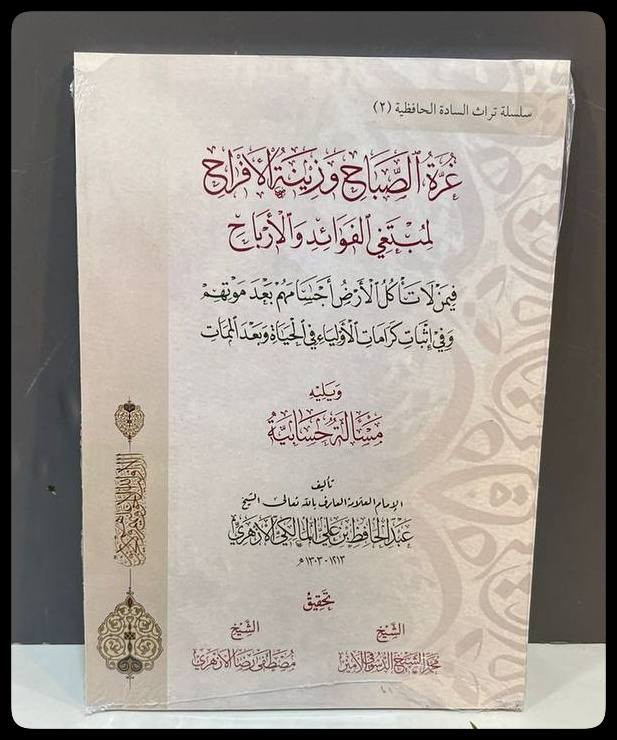 سلسلة تراث السادة الحافظية (٢)
غُرَّةُ الصَّبَاحِ وَزِينَةُ الأَفْرَاحِ
لِمُبْتَغِي الفَوَائِدِ وَالأَرْبَاحِ
فِيمَنْ لَا تَأْكُلُ الأَرْضُ أَجْسَامَهُمْ بَعْدَ مَوْتِهِمْ
وَفِي إِثْبَاتِ كَرَامَاتِ الأَوْلِيَاءِ فِي الحَيَاةِ وَبَعْدَ المَمَاتِ
وَيَلِيهِ
مَسْأَلَةٌ حِسَابِيَّةٌ
تأليف
الإمام العلامة العارف بالله تعالى الشيخ
عَبْدِ الحَافِظِ بْنِ عَلِيٍّ المَالِكِيِّ الأَزْهَرِيِّ
١٢١٣ - ١٣٠٣ هـ
تَحْقِيقُ
الشَّيْخِ
مُحَمَّد الشَّيْخ الدُّسُوقِي الأَمِين
الشَّيْخِ
مُصْطَفَى رِضَا الأَزْهَرِيّ